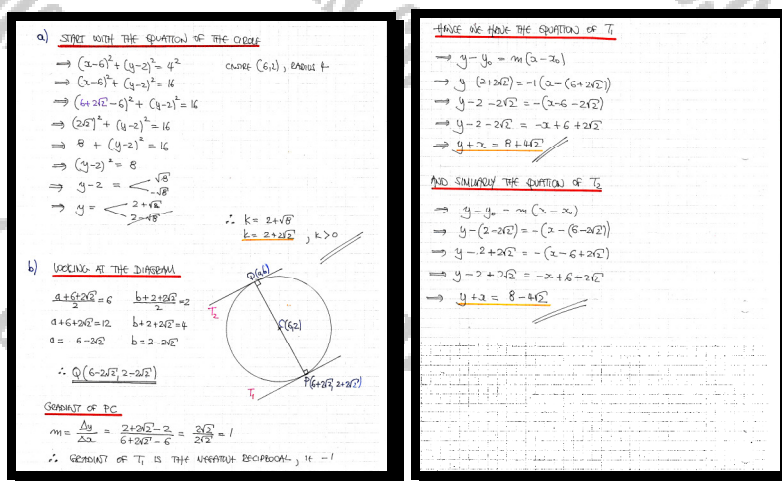 a) START WITH THE EQUATION OF THE CIRCLE
⇒ (x-6)² + (y-2)² = 4² CENTRE (6,2), RADIUS 4
⇒ (x-6)² + (y-2)² = 16
⇒ (6+2√2-6)² + (y-2)² = 16
⇒ (2√2)² + (y-2)² = 16
⇒ 8 + (y-2)² = 16
⇒ (y-2)² = 8
⇒ y-2 = < √8
-√8
⇒ y = < 2+√8
2-√8
∴ k = 2+√8
k = 2+2√2, k>0
b) LOOKING AT THE DIAGRAM
(a+6+2√2)/2 = 6 (b+2+2√2)/2 = 2
a+6+2√2 = 12 b+2+2√2 = 4
a = 6-2√2 b = 2-2√2
∴ Q(6-2√2, 2-2√2)
Q(a,b)
T₂
C(6,2)
P(6+2√2, 2+2√2)
T₁
GRADIENT OF PC
m = Δy/Δx = (2+2√2-2)/(6+2√2-6) = 2√2/2√2 = 1
∴ GRADIENT OF T₁ IS THE NEGATIVE RECIPROCAL, IE -1
HENCE WE HAVE THE EQUATION OF T₁
⇒ y-y₀ = m(x-x₀)
⇒ y (2+2√2) = -1(x-(6+2√2))
⇒ y-2-2√2 = -(x-6-2√2)
⇒ y-2-2√2 = -x+6+2√2
⇒ y+x = 8+4√2
AND SIMILARLY THE EQUATION OF T₂
⇒ y-y₀ = m(x-x₀)
⇒ y-(2-2√2) = -(x-(6-2√2))
⇒ y-2+2√2 = -(x-6+2√2)
⇒ y-2+2√2 = -x+6-2√2
⇒ y+x = 8-4√2